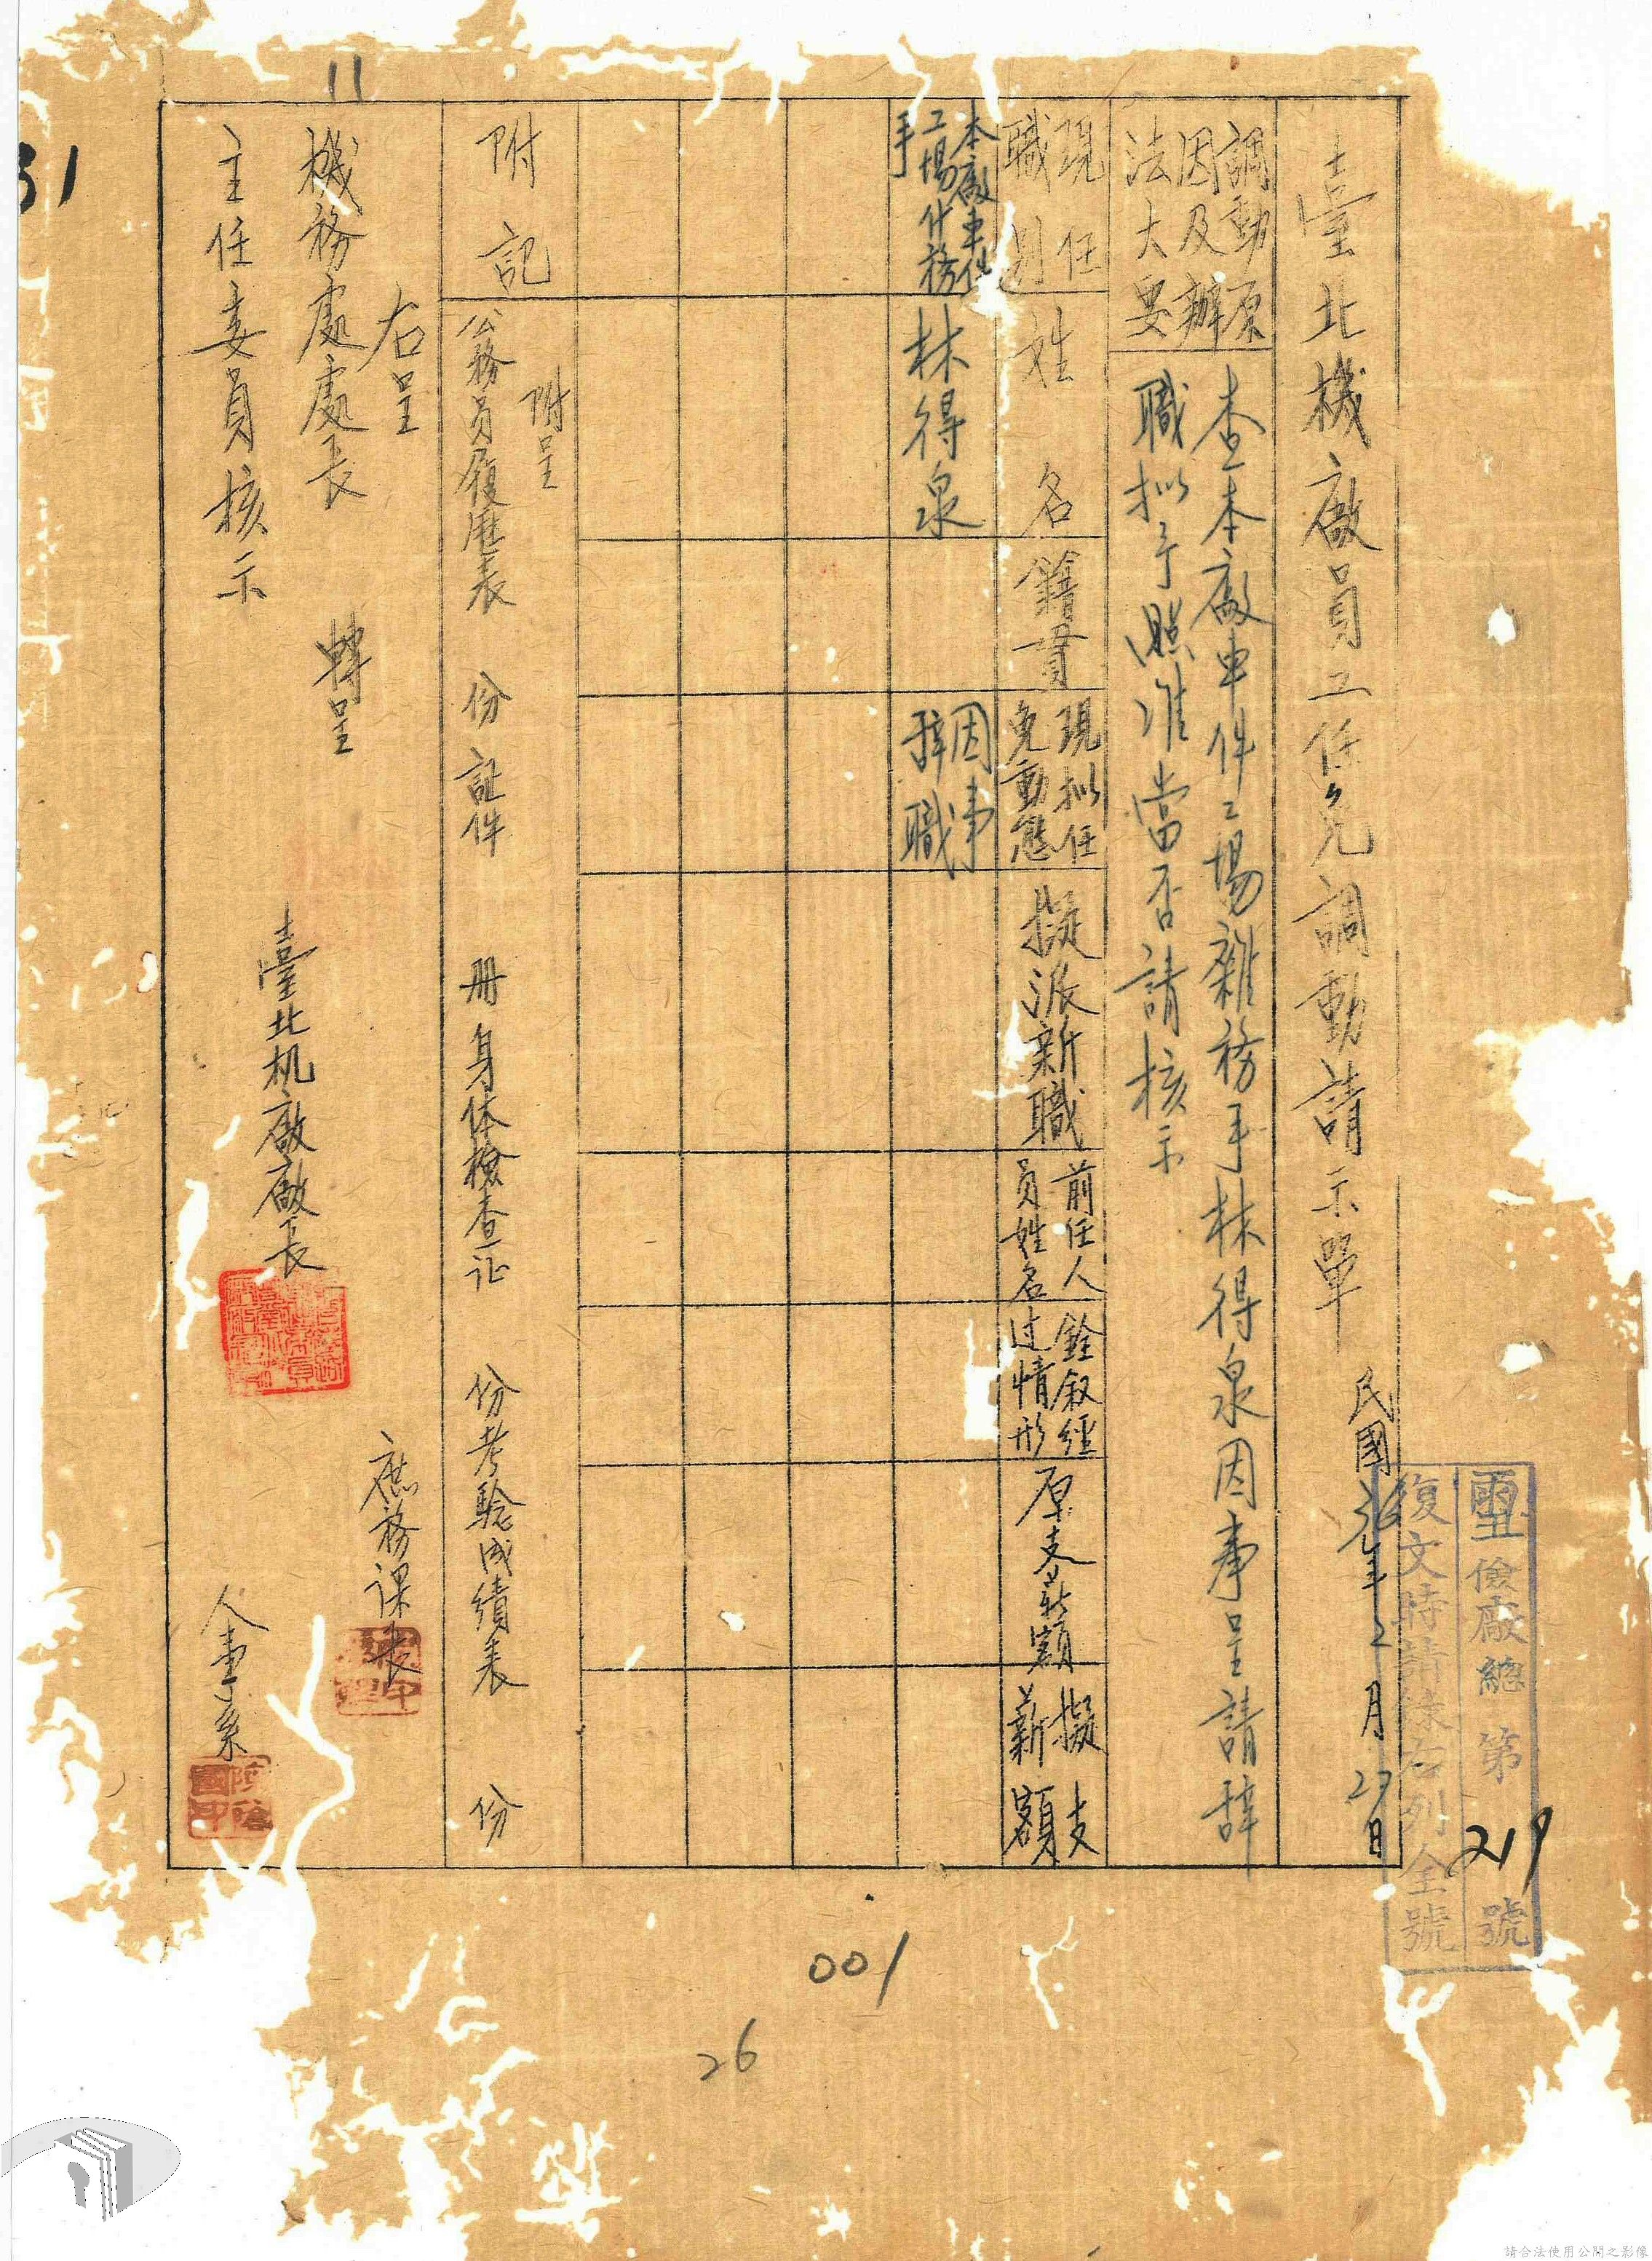 臺北機廠員工任免調動請示單
民國 年 2 月 27 日
儉廠總 第 219 號
復文時請 右列全號
調動原
因及辦
法大要
查本廠車件工場雜務手林得泉因事呈請辞
職拟予照准當否請核示
現任
職別
姓名
籍貫
現拟任
免動態
擬派新職
前任人
員姓名
銓叙經
过情形
原支薪額
擬支
薪額
本廠車件
工場什務
手
林得泉
因事
辞職
附記
附呈
公務員履歷表 份 証件 册 身体檢查证 份 考驗成績表 份
右呈
機務處處長 轉呈
主任委員核示
臺北机廠廠長
庶務课長
人事系
11
31
001
26
請合法使用公開之影像